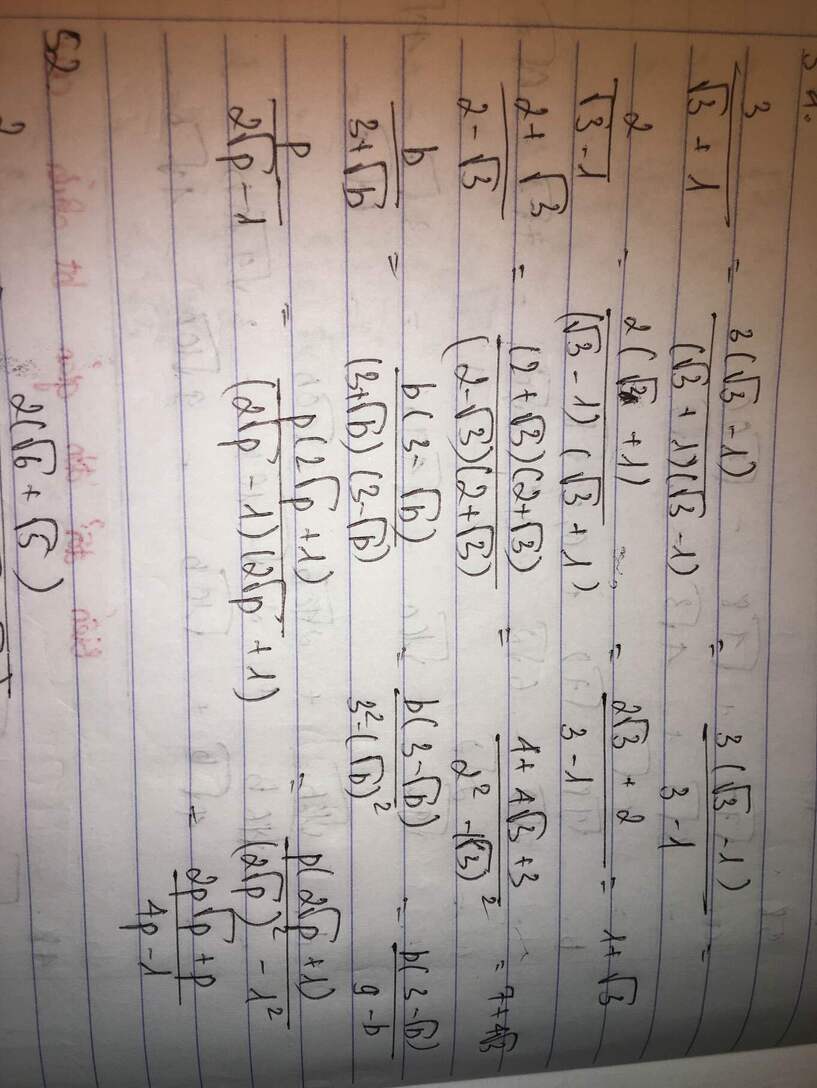 3/(√3 + 1) = 3(√3 - 1)/((√3 + 1)(√3 - 1)) = 3(√3 - 1)/(3 - 1) =
2/(√3 - 1) = 2(√3 + 1)/((√3 - 1)(√3 + 1)) = (2√3 + 2)/(3 - 1) = 1 + √3
(2 + √3)/(2 - √3) = (2 + √3)(2 + √3)/((2 - √3)(2 + √3)) = (4 + 4√3 + 3)/(2² - (√3)²) = 7 + 4√3
b/(3 + √b) = b(3 - √b)/((3 + √b)(3 - √b)) = b(3 - √b)/(3² - (√b)²) = b(3 - √b)/(9 - b)
p/(2√p - 1) = p(2√p + 1)/((2√p - 1)(2√p + 1)) = p(2√p + 1)/((2√p)² - 1²)
= (2p√p + p)/(4p - 1)
52
2 2(√6 + √5)